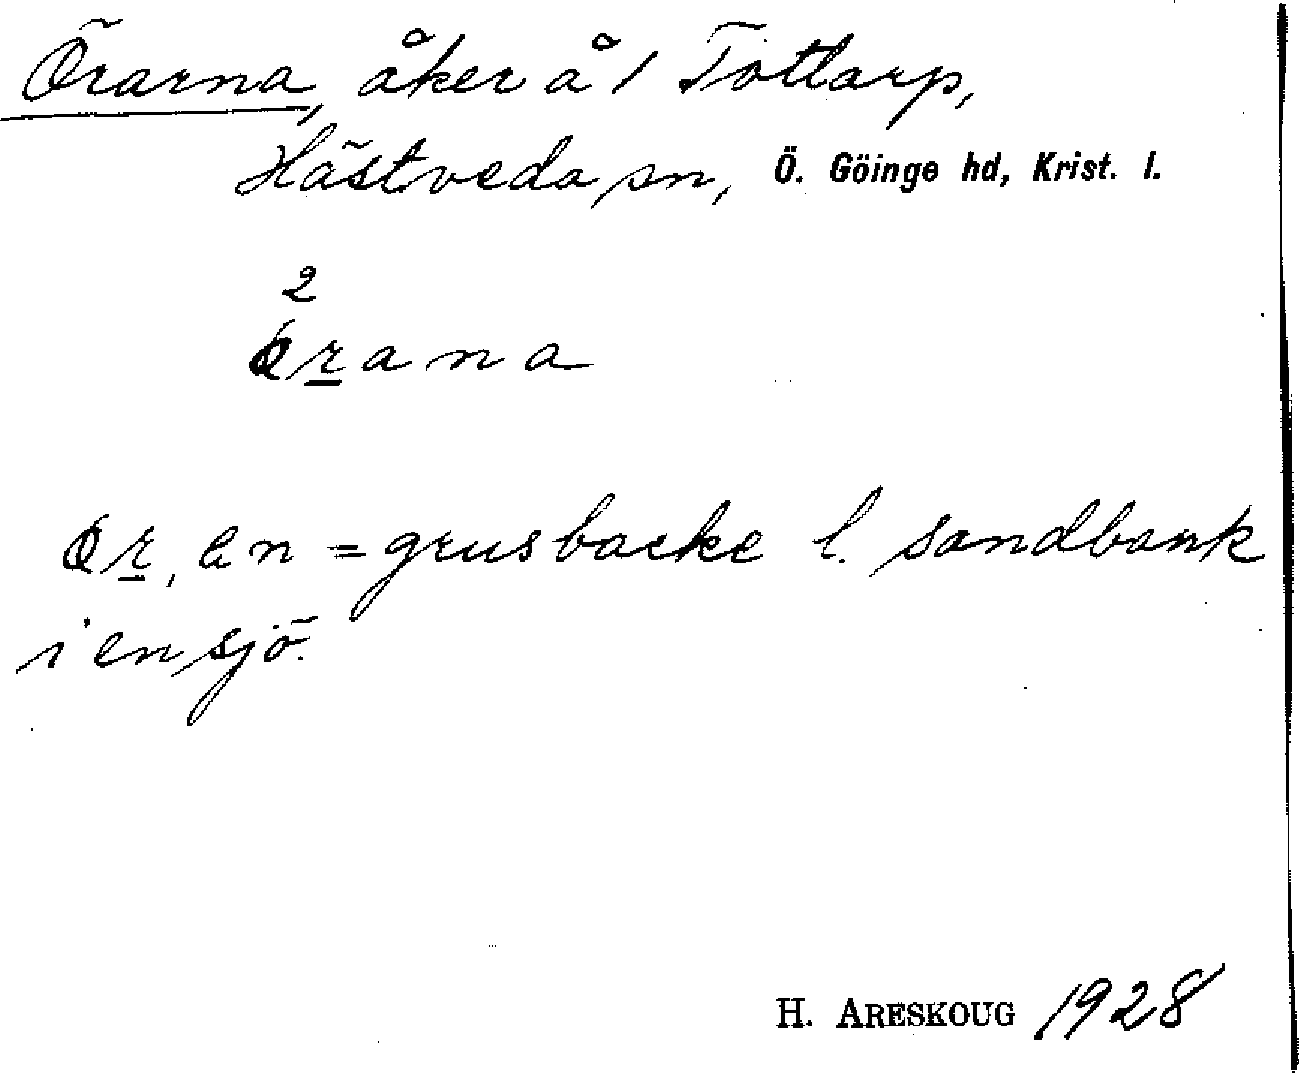 Örarna, åker å 1 Tottarp,
Hästveda sn, Ö. Göinge hd, Krist. l.
2
ørana
ør, en = grusbacke l. sandbank
i en sjö.
H. ARESKOUG 1928